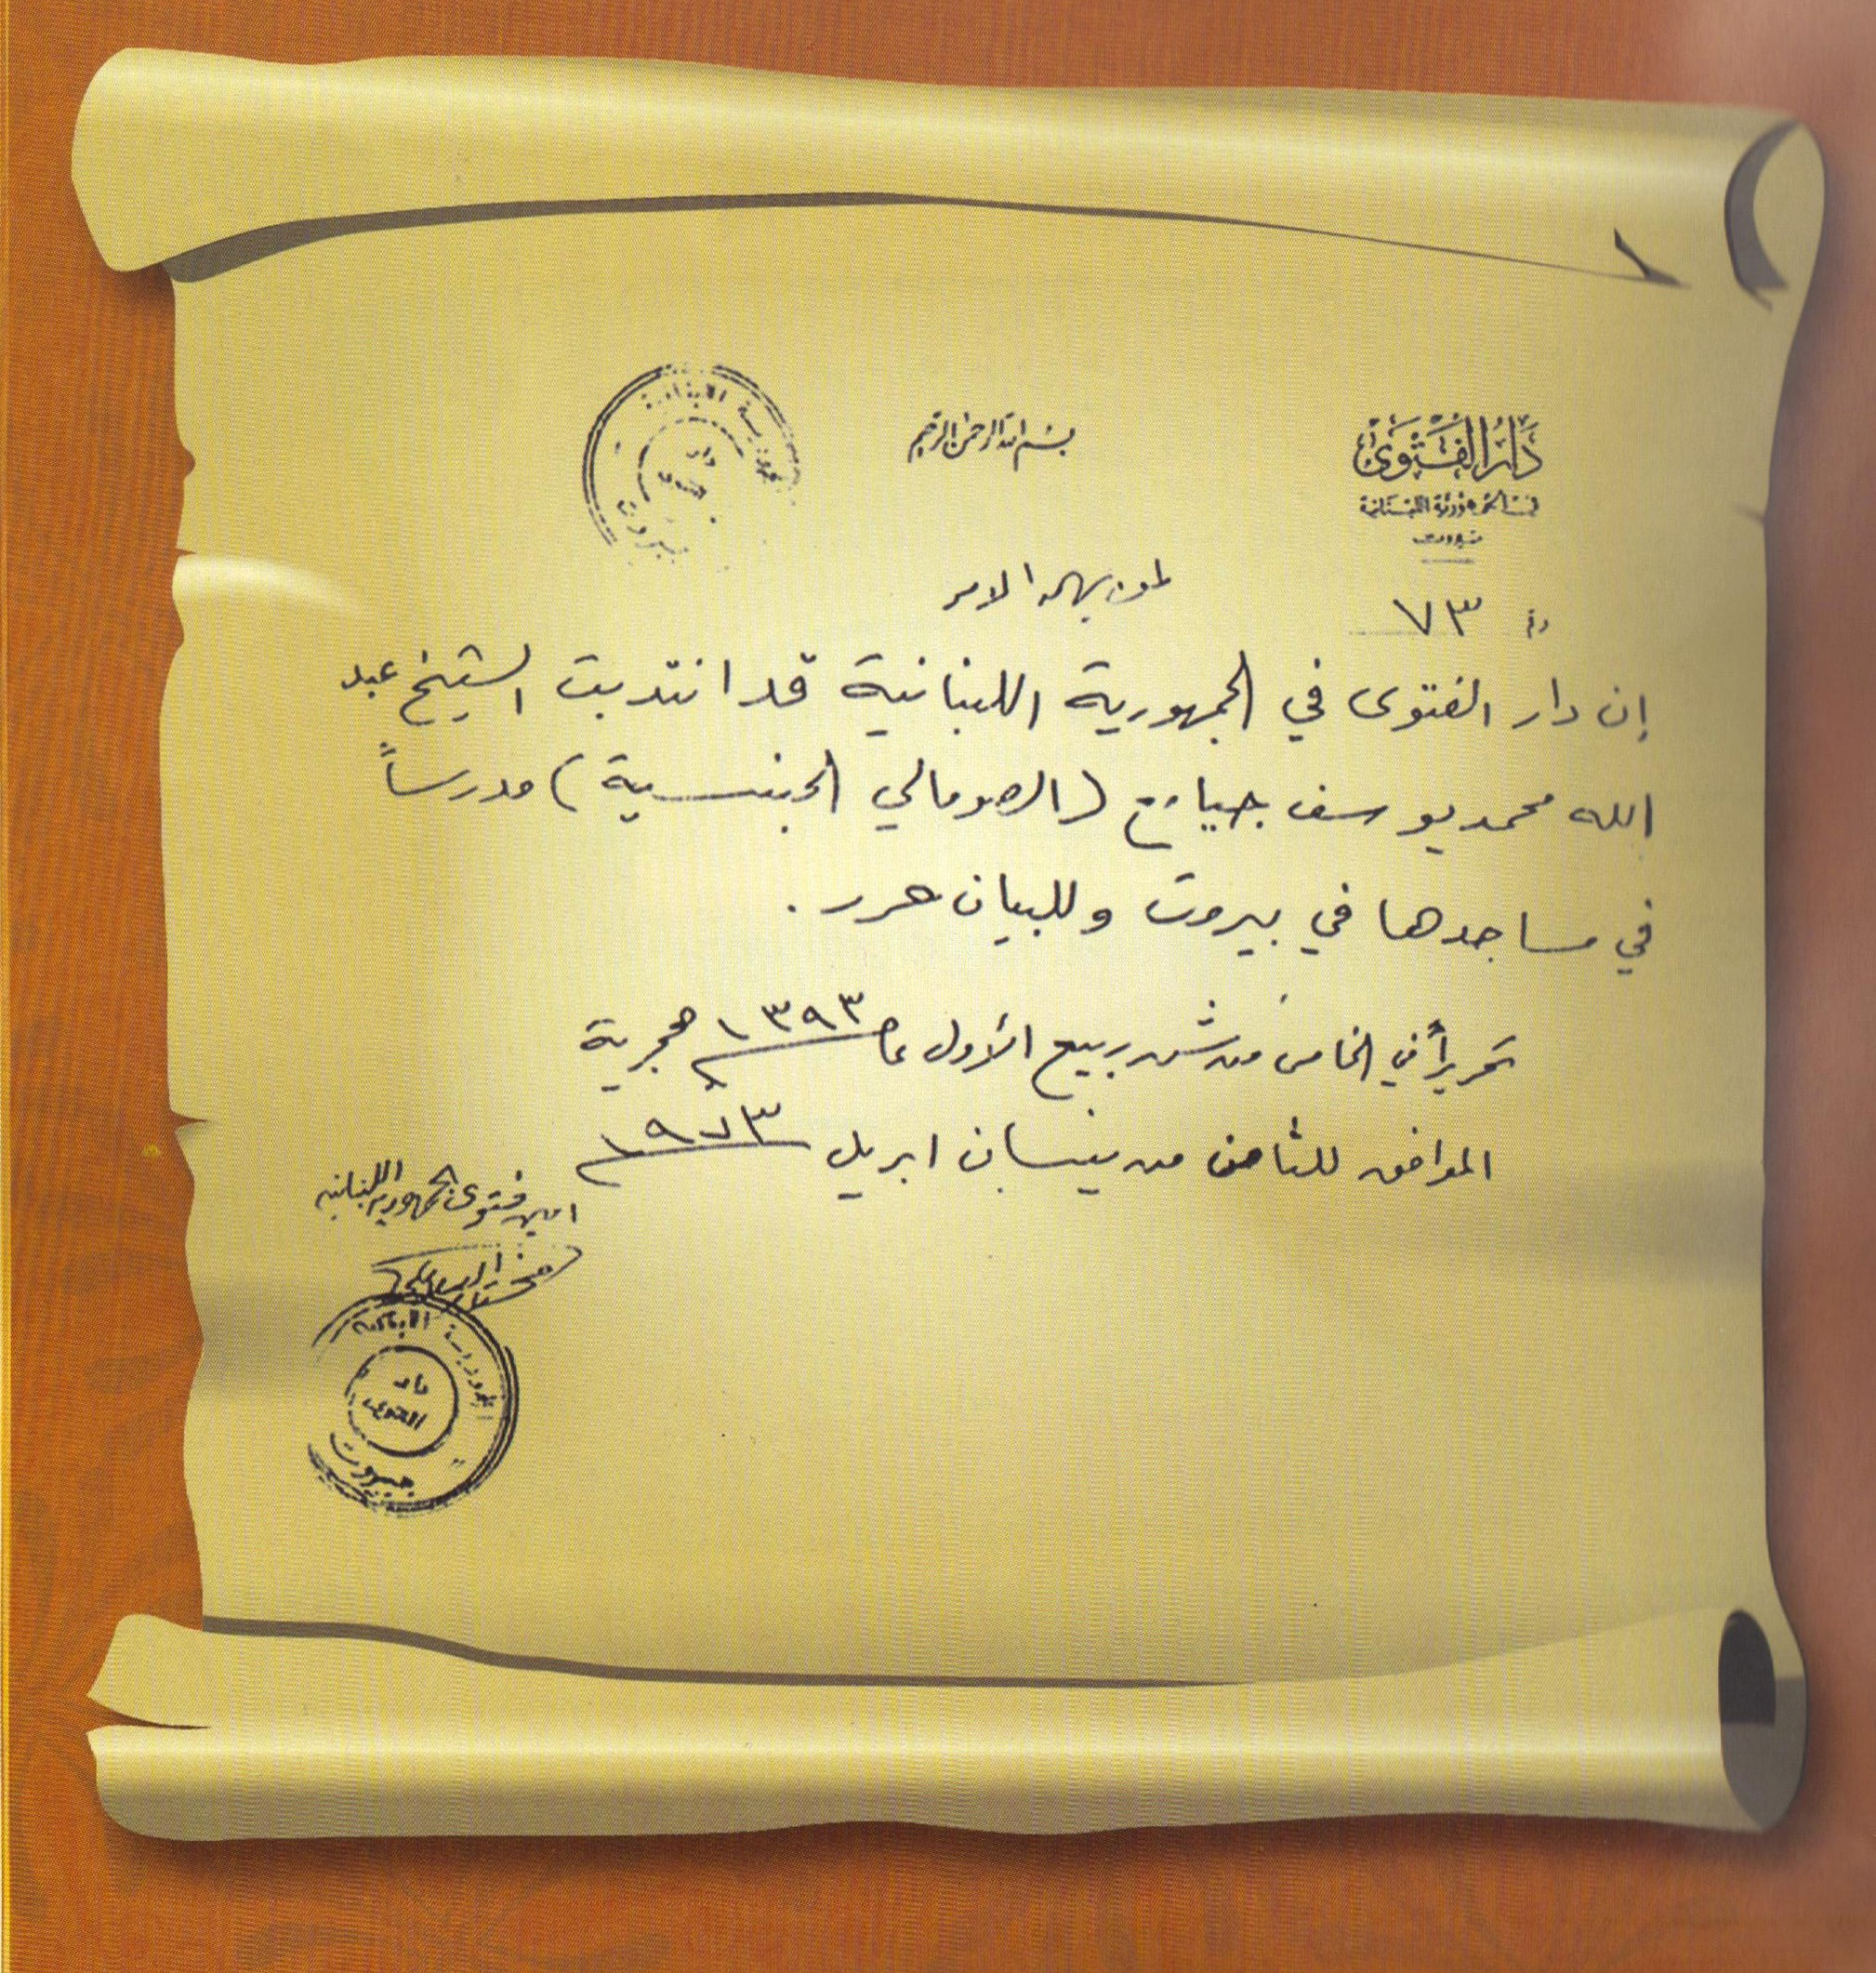 دار الفتوى
في الجمهورية اللبنانية
بيروت
بسم الله الرحمن الرحيم
الجمهورية اللبنانية
دار الفتوى
بيروت
رقم ٧٣
لمن يهمه الامر
إن دار الفتوى في الجمهورية اللبنانية قد انتدبت الشيخ عبد
الله محمد يوسف (الصومالي الجنسية) مدرساً
في مساجدها في بيروت وللبيان حرر .
تحريراً في الخامس من شهر ربيع الأول عام ١٣٩٣ هجرية
الموافق للثامن من نيسان ابريل ١٩٧٣
امين فتوى الجمهورية اللبنانية
الجمهورية اللبنانية
دار الفتوى
بيروت